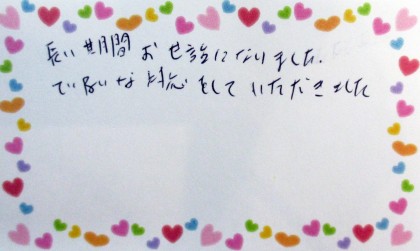 長い期間お世話になりました.
ていねいな対応をしていただきました